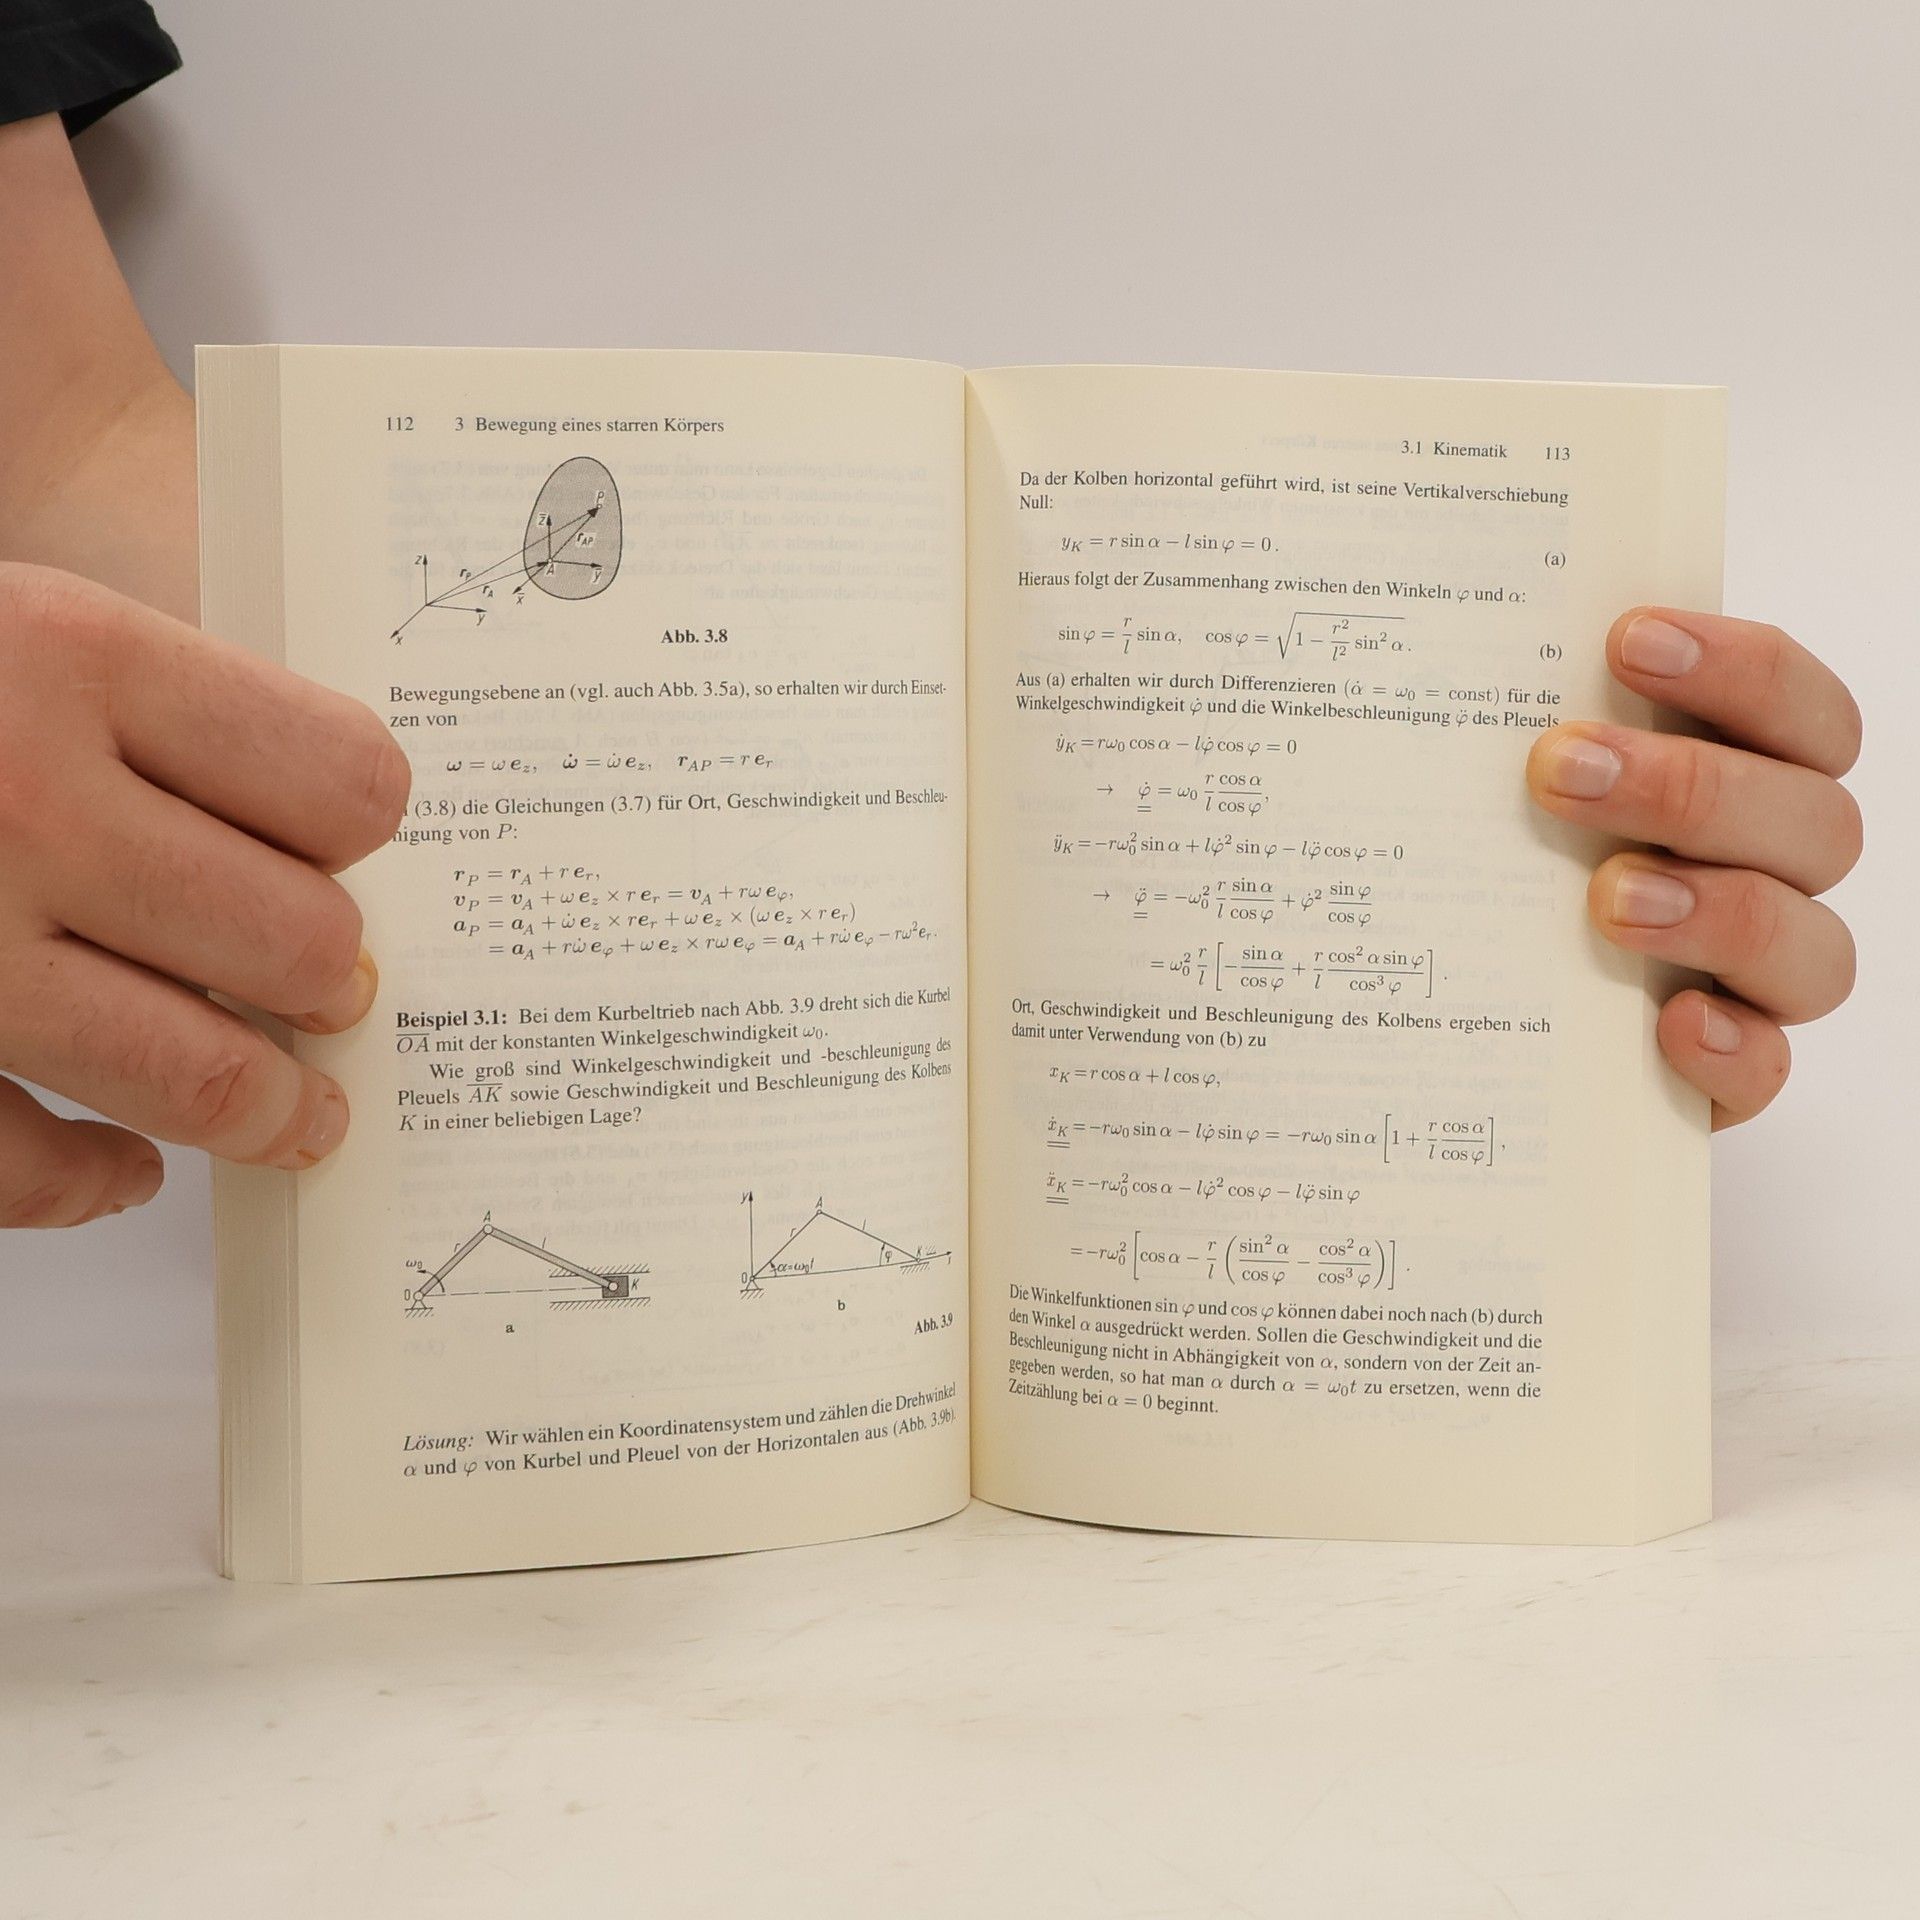 112 3 Bewegung eines starren Körpers
P
z̄
r_AP
A
ȳ
x̄
z
r_P
r_A
y
x
Abb. 3.8
Bewegungsebene an (vgl. auch Abb. 3.5a), so erhalten wir durch Einset-
zen von
ω = ω e_z, ω̇ = ω̇ e_z, r_AP = r e_r
(3.8) die Gleichungen (3.7) für Ort, Geschwindigkeit und Beschleu-
nigung von P:
r_P = r_A + r e_r,
v_P = v_A + ω e_z × r e_r = v_A + rω e_φ,
a_P = a_A + ω̇ e_z × r e_r + ω e_z × (ω e_z × r e_r)
= a_A + rω̇ e_φ + ω e_z × rω e_φ = a_A + rω̇ e_φ − rω² e_r.
Beispiel 3.1: Bei dem Kurbeltrieb nach Abb. 3.9 dreht sich die Kurbel
O̅A̅ mit der konstanten Winkelgeschwindigkeit ω₀.
Wie groß sind Winkelgeschwindigkeit und -beschleunigung des
Pleuels A̅K̅ sowie Geschwindigkeit und Beschleunigung des Kolbens
K in einer beliebigen Lage?
A
r
l
ω₀
0
K
a
y
A
r
l
α=ω₀t
φ
K
0
b
Abb. 3.9
Lösung: Wir wählen ein Koordinatensystem und zählen die Drehwinkel
α und φ von Kurbel und Pleuel von der Horizontalen aus (Abb. 3.9b).
3.1 Kinematik 113
Da der Kolben horizontal geführt wird, ist seine Vertikalverschiebung
Null:
y_K = r sin α − l sin φ = 0. (a)
Hieraus folgt der Zusammenhang zwischen den Winkeln φ und α:
sin φ = r/l sin α, cos φ = √(1 − r²/l² sin² α). (b)
Aus (a) erhalten wir durch Differenzieren (α̇ = ω₀ = const) für die
Winkelgeschwindigkeit φ̇ und die Winkelbeschleunigung φ̈ des Pleuels
ẏ_K = rω₀ cos α − lφ̇ cos φ = 0
→ φ̇ = ω₀ r/l cos α/cos φ,
ÿ_K = −rω₀² sin α + lφ̇² sin φ − lφ̈ cos φ = 0
→ φ̈ = −ω₀² r/l sin α/cos φ + φ̇² sin φ/cos φ
= ω₀² r/l [− sin α/cos φ + r/l cos² α sin φ/cos³ φ].
Ort, Geschwindigkeit und Beschleunigung des Kolbens ergeben sich
damit unter Verwendung von (b) zu
x_K = r cos α + l cos φ,
ẋ_K = −rω₀ sin α − lφ̇ sin φ = −rω₀ sin α [1 + r/l cos α/cos φ],
ẍ_K = −rω₀² cos α − lφ̇² cos φ − lφ̈ sin φ
= −rω₀² [cos α − r/l (sin² α/cos φ − cos² α/cos³ φ)].
Die Winkelfunktionen sin φ und cos φ können dabei noch nach (b) durch
den Winkel α ausgedrückt werden. Sollen die Geschwindigkeit und die
Beschleunigung nicht in Abhängigkeit von α, sondern von der Zeit an-
gegeben werden, so hat man α durch α = ω₀t zu ersetzen, wenn die
Zeitzählung bei α = 0 beginnt.